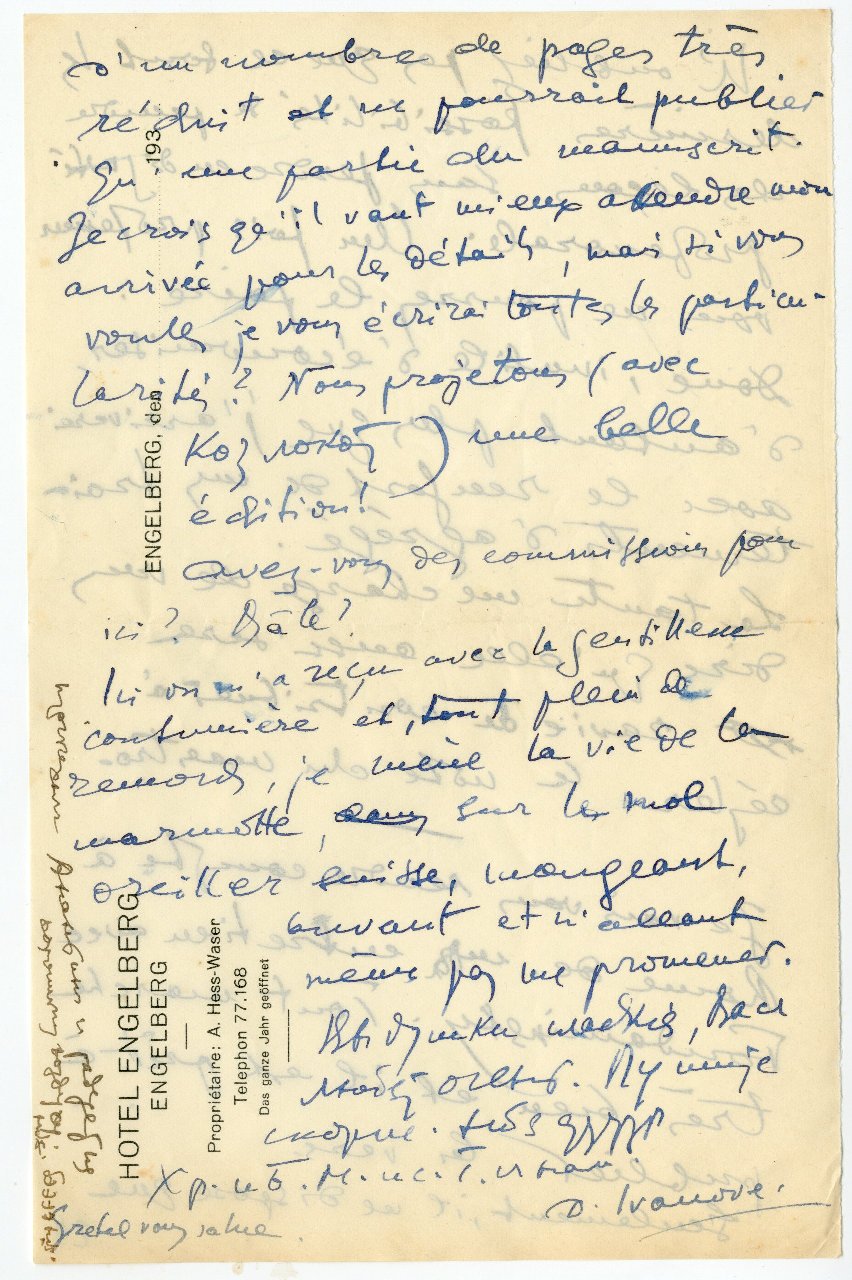 d'un nombre de pages très
réduit et ne pourrait publier
qu'une partie du manuscrit.
Je crois qu'il vaut mieux attendre mon
arrivée pour les détails, mais si vous
voulez je vous écrirai toutes les particu-
larités? Nous projetons (avec
) une belle
édition!
Avez-vous des commissions pour
ici? Bâle?
Ici on m'a reçu avec la gentillesse
coutumière et, tout plein de
remords, je mène la vie de la
marmotte, sur le mol
oreiller suisse, mangeant,
buvant et n'allant
même pas me promener.
скорие.
D. Ivanov.
Gretel vous salue.
ENGELBERG, den 193
HOTEL ENGELBERG
ENGELBERG
Propriétaire: A. Hess-Waser
Telephon 77.168
Das ganze Jahr geöffnet